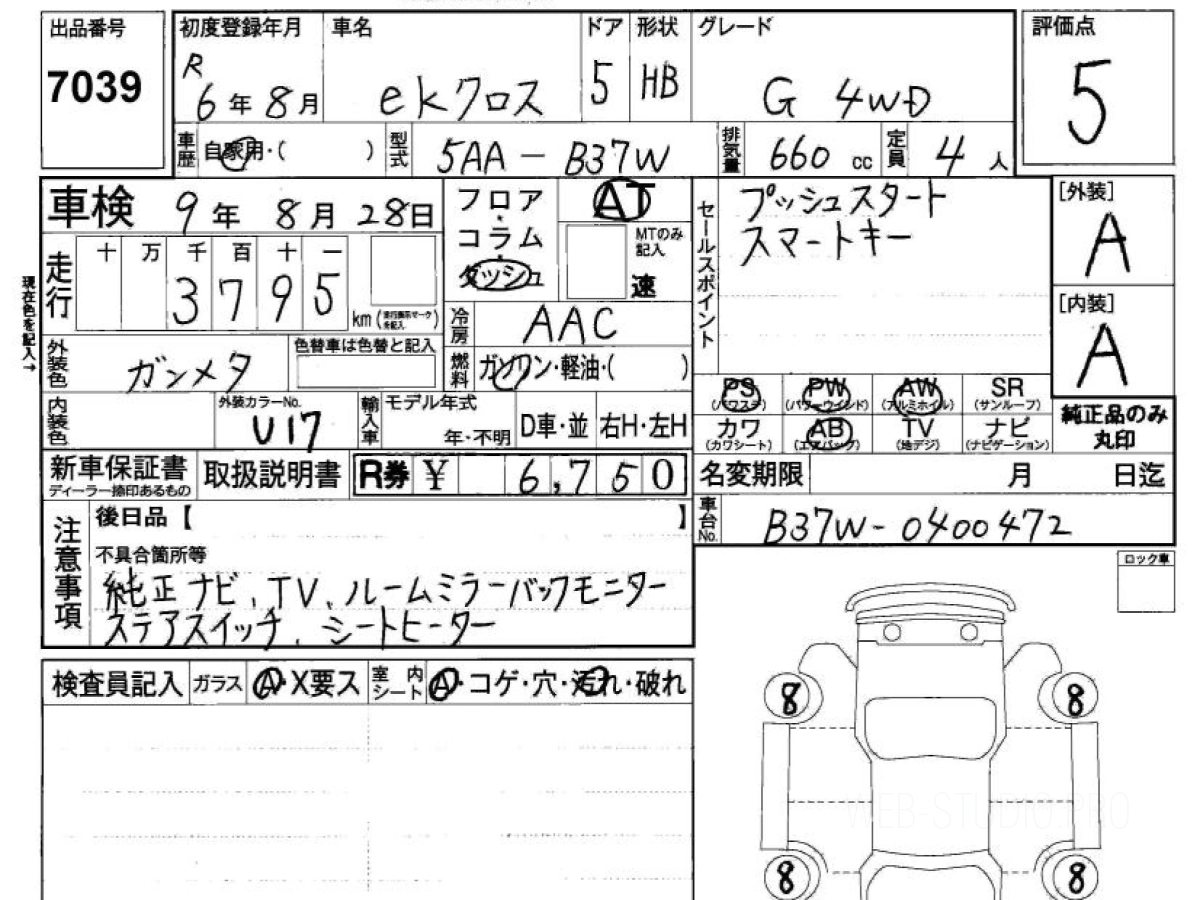 出品番号
7039
初度登録年月
R
6年8月
車名
eKクロス
ドア
5
形状
HB
グレード
G 4WD
評価点
5
車歴
自家用・( )
型式
5AA-B37W
排気量
660 cc
定員
4人
車検 9年 8月 28日
走行
十 万 千 百 十 一
3 7 9 5
km (走行表示マークを記入)
現在色を記入→
フロア
・
コラム
・
ダッシュ
AT
MTのみ記入
速
冷房
AAC
燃料
ガソリン・軽油・( )
外装色
ガンメタ
色替車は色替と記入
内装色
外装カラーNo.
U17
輸入車
モデル年式
年・不明
D車・並
右H・左H
セールスポイント
プッシュスタート
スマートキー
[外装]
A
[内装]
A
PS
(パワステ)
PW
(パワーウインド)
AW
(アルミホイル)
SR
(サンルーフ)
カワ
(カワシート)
AB
(エアバッグ)
TV
(地デジ)
ナビ
(ナビゲーション)
純正品のみ
丸印
新車保証書
ディーラー捺印あるもの
取扱説明書
R券 ¥ 6,750
名変期限 月 日迄
車台No.
B37W-0400472
注意事項
後日品【 】
不具合箇所等
純正ナビ、TV、ルームミラーバックモニター
ステアスイッチ、シートヒーター
ロック車
検査員記入
ガラス
A・X要ス
室内シート
A・コゲ・穴・汚れ・破れ
8
8
8
8
WEB-STUDIO.PRO